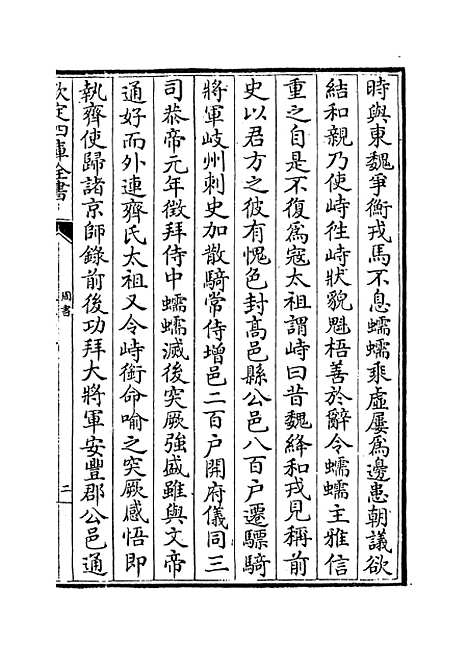 時與東魏爭衡戎馬不息蠕蠕乘虛屢為邊患朝議欲
結和親乃使峙徃峙狀貌魁梧善於辭令蠕蠕主雅信
重之自是不復為寇太祖謂峙曰昔魏絳和戎見稱前
史以君方之彼有愧色封髙邑縣公邑八百户遷驃騎
將軍岐州刺史加散騎常侍增邑二百户開府儀同三
司恭帝元年徵拜侍中蠕蠕滅後突厥強盛雖與文帝
通好而外連齊氏太祖又令峙銜命喻之突厥感悟即
執齊使歸諸京師錄前後功拜大將軍安豐郡公邑通
欽定四庫全書
周書
二